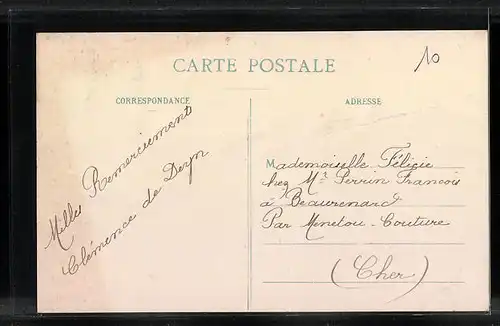 10
CARTE POSTALE
CORRESPONDANCE
ADRESSE
Milles Remerciement
Clémence de
Mademoiselle Félicie
chez Mr Perrin Francois
à Beaurenard
Par Menetou-Couture
(Cher)